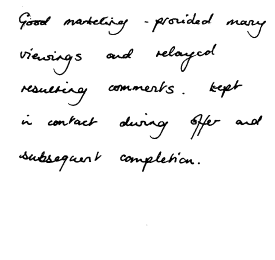 Good marketing - provided many
viewings and relayed
resulting comments. Kept
in contact during offer and
subsequent completion.